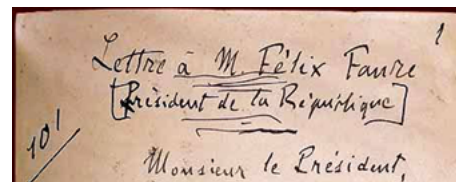 1
Lettre à M. Félix Faure
[Président de la République]
101
Monsieur le Président,